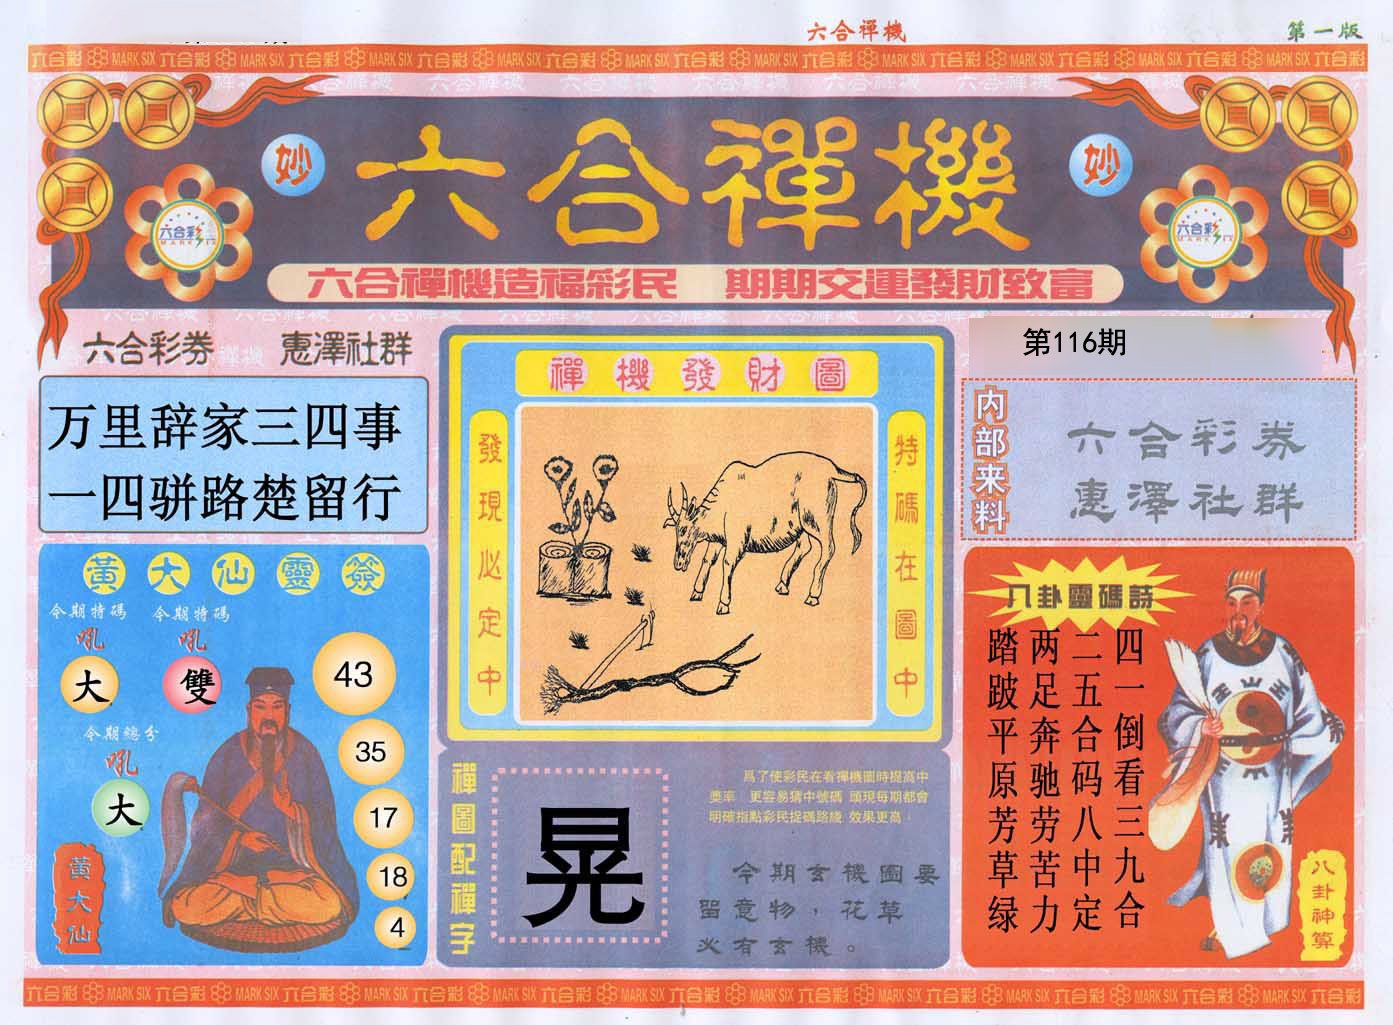 六合禪機
第一版
六合彩 MARK SIX 六合彩 MARK SIX 六合彩 MARK SIX 六合彩 MARK SIX 六合彩 MARK SIX 六合彩 MARK SIX 六合彩 MARK SIX 六合彩 MARK SIX 六合彩 MARK SIX 六合彩 MARK SIX 六合彩
妙
六合禪機
妙
六合彩
MARK SIX
六合彩
MARK SIX
六合禪機造福彩民 期期交運發財致富
六合彩券 惠澤社群
万里辞家三四事
一四骈路楚留行
黃大仙靈簽
今期特碼
吼
大
今期特碼
吼
雙
今期總分
吼
大
43
35
17
18
4
黃大仙
禪機發財圖
發現必定中
特碼在圖中
禪圖配禪字
晃
爲了使彩民在看禪機圖時提高中
獎率 更容易猜中號碼 頭現每期都會
明確指點彩民捉碼路綫 效果更高
今期玄機圖要
留意物，花草
必有玄機。
第116期
内部来料
六合彩券
惠澤社群
八卦靈碼詩
四一倒看三九合
二五合码八中定
两足奔驰劳苦力
踏跛平原芳草绿
八卦神算
六合彩 MARK SIX 六合彩 MARK SIX 六合彩 MARK SIX 六合彩 MARK SIX 六合彩 MARK SIX 六合彩 MARK SIX 六合彩 MARK SIX 六合彩 MARK SIX 六合彩 MARK SIX 六合彩 MARK SIX 六合彩